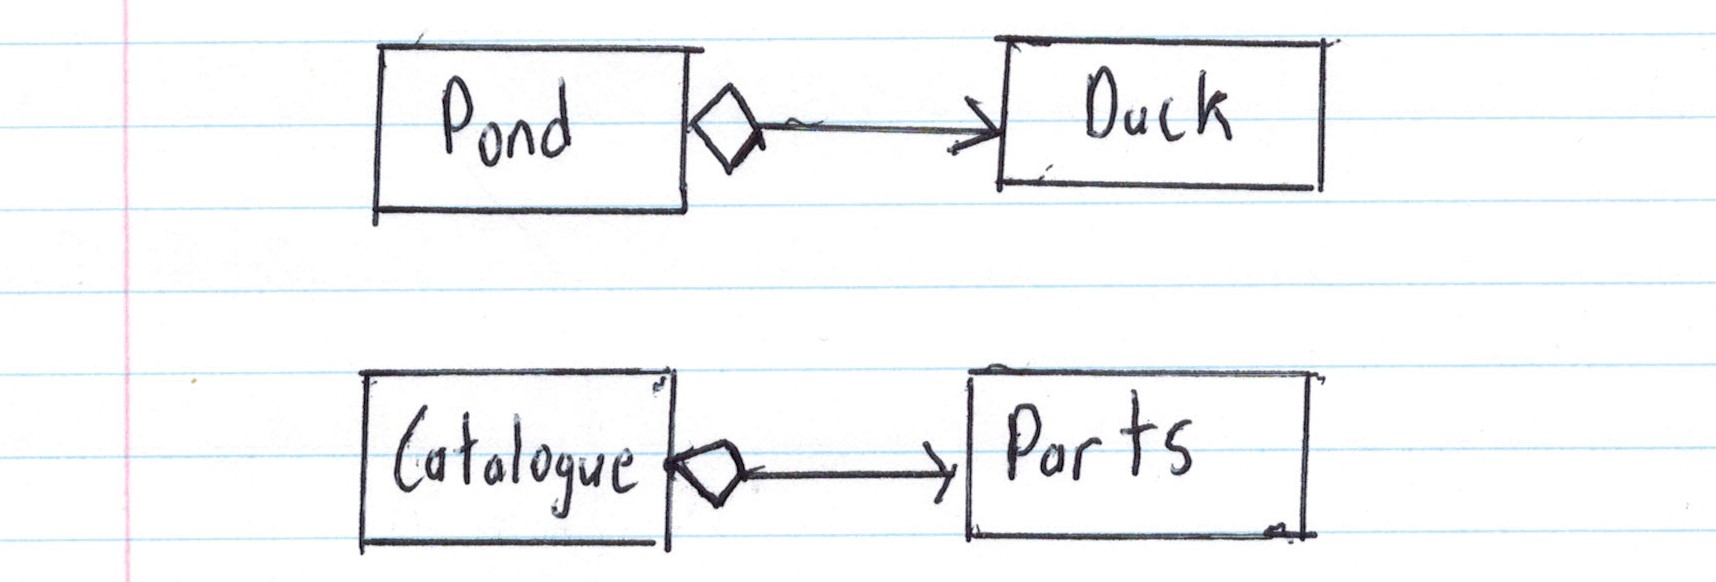 Pond
Duck
Catalogue
Parts